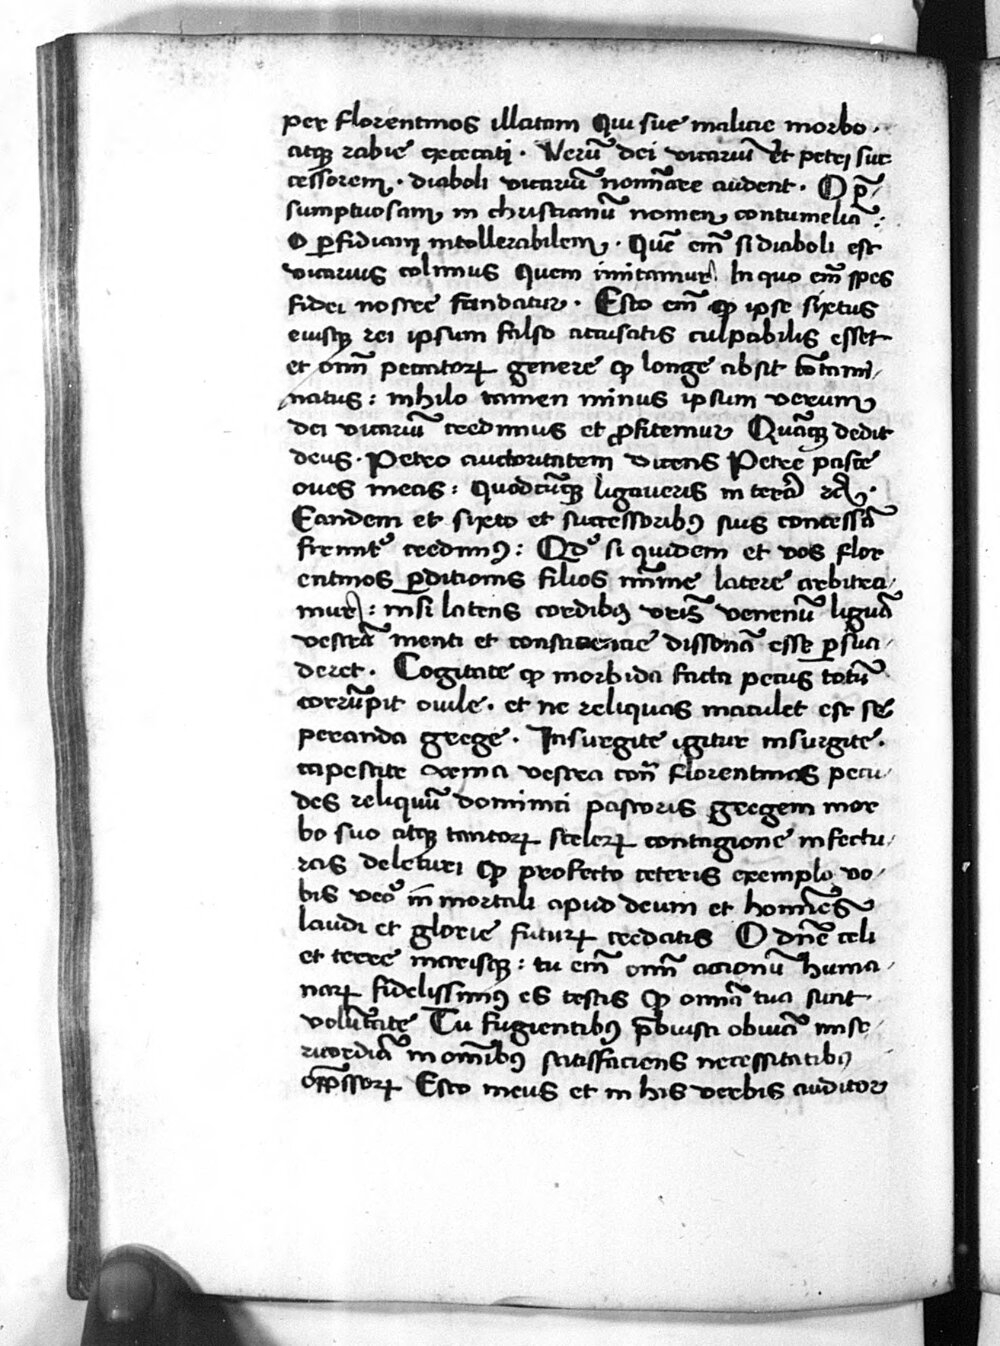 per florentinos illatam Qui sue malicie morbo ·
atqꝫ rabie excecati · Verū dei vicariū et petri suc
cessorem · diaboli vicariū nomīare audent · O p̄
sumptuosam in christianū nomen contumeliā :
O ꝑfidiam intollerabilem · Quē em̄ si diaboli est
vicarius colimus quem imitamur In quo em̄ spes
fidei nostre fundatur · Esto em̄ ꝙ ipse sixtus
euisqꝫ rei ipsum falso accusatis culpabilis esset
et om̄i peccatoꝝ genere ꝙ longe absit cōtami
natus : nihilo tamen minus ipsum verum
dei vicariū credimus et ꝓfitemur Quāqꝫ dedit
deus · Petro auctoritatem dicens Petre pasce
oues meas : quodcūqꝫ ligaueris in terrā
Eandem et sixto et successoribꝰ suis concessā
credimꝰ : si quidem et vos flor
entinos ꝑditionis filios mīme latere arbitra
mur : nisi latens cordibꝰ vr̄is venenū liguā
vestrā menti et consciencie dissonā esse ꝑsua
deret · Cogitate ꝙ morbida facta pecus totū
corrūpit ouile · et ne reliquas maculet est se
peranda grege · Insurgite igitur insurgite ·
capescite arma vestra florentinas pecu
des reliquū dominici pastoris gregem mor
bo suo atqꝫ tantoꝝ sceleꝝ contagione infectu
ras deleturi ꝙ profecto ceteris exemplo vo
bis vero īmortali apud deum et homīes
laudi et glorie futuꝝ credatis O dn̄e celi
et terre marisqꝫ : tu em̄ om̄i accionū huma
naꝝ fidelissimꝰ es testis ꝙ omīa tua sunt
volūtate Tu fugientibꝰ p̄buisti obuiā mise
ricordiā in omībꝰ satisfaciens necessitatibꝰ
opp̄ssoꝝ Esto meus et in his verbis auditor